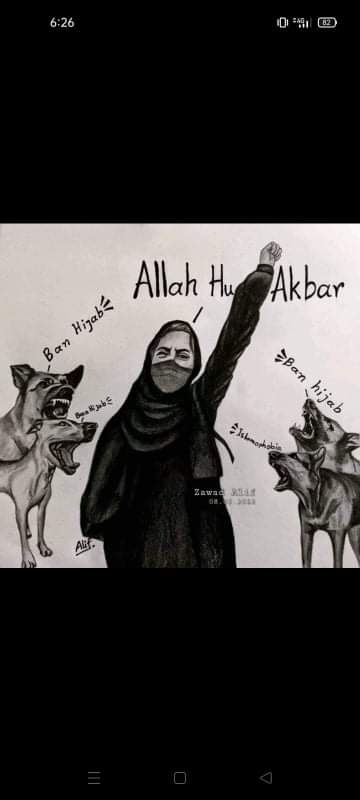 6:26
4G
82
Allah Hu Akbar
Ban Hijab
Ban hijab
Ban Hijab
Islamophobia
Zawad Alif
Alif.